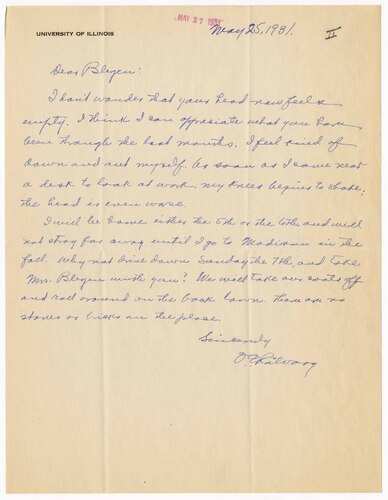 UNIVERSITY OF ILLINOIS
MAY 27 1931
May 25, 1931.
II
Dear Blegen:
I don't wonder that your head now feels
empty. I think I can appreciate what you have
been through the last months. I feel kind of
down and out myself. As soon as I come near
a desk to look at work, my knees begin to shake;
the head is even worse.
I will be home either the 5th or the 6th, and will
not stray far away until I go to Madison in the
fall. Why not drive down Sunday the 7th, and take
Mrs. Blegen with you? We will take our coats off
and roll around on the back lawn. There are no
stones or bricks on the place.
Sincerely